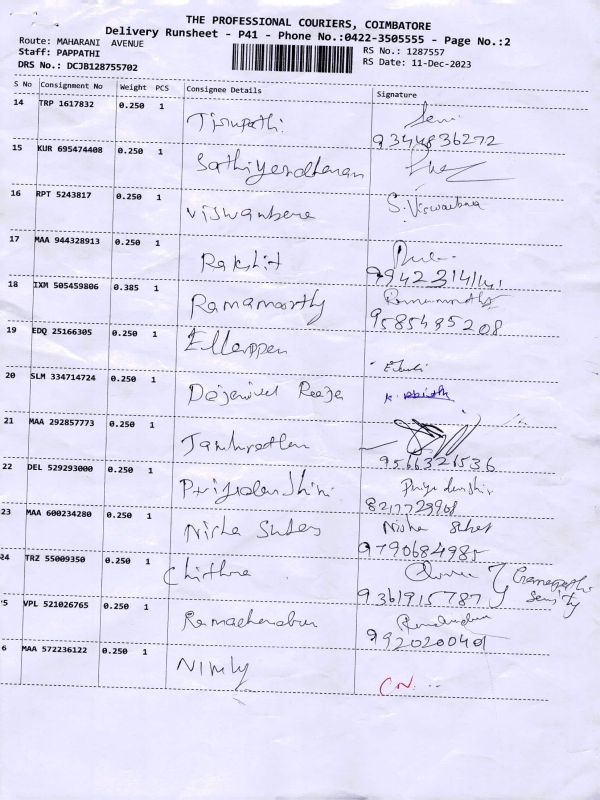 THE PROFESSIONAL COURIERS, COIMBATORE
Delivery Runsheet - P41 - Phone No.:0422-3505555 - Page No.:2
Route: MAHARANI AVENUE
RS No.: 1287557
Staff: PAPPATHI
RS Date: 11-Dec-2023
DRS No.: DCJB128755702
S No Consignment No Weight PCS Consignee Details Signature
14 TRP 1617832 0.250 1 Tirupathi
9344836272
15 KUR 695474408 0.250 1
16 RPT 5243817 0.250 1 S. Viswanbara
17 MAA 944328913 0.250 1 Rakshit
18 IXM 505459806 0.385 1 Ramamoorthy
9585485208
19 EDQ 25166305 0.250 1 Ellappen
20 SLM 334714724 0.250 1
21 MAA 292857773 0.250 1
9566321536
22 DEL 529293000 0.250 1 Priyadarshini
8217729908
23 MAA 600234280 0.250 1 Nisha
Nisha
9790684985
24 TRZ 55009350 0.250 1 Chithra
9361915787
5 VPL 521026765 0.250 1
9920200401
6 MAA 572236122 0.250 1 Nimly
C.N.